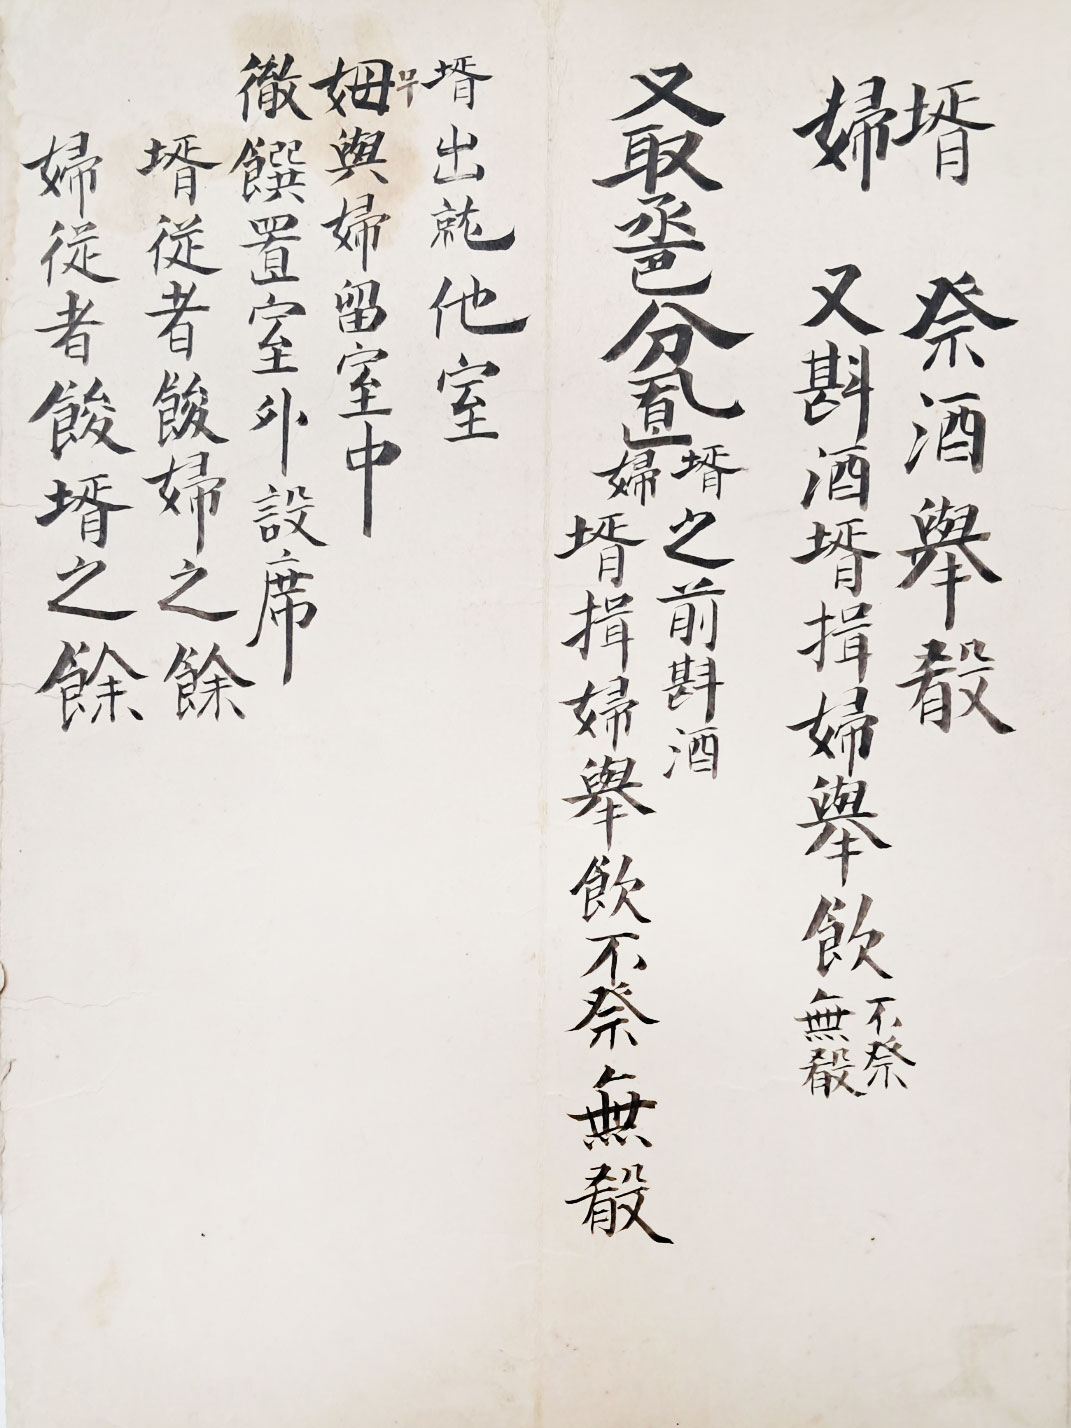 壻 祭酒舉殽
婦 又斟酒壻揖婦舉飲
不祭
無殽
又取巹分置
壻之前斟酒
婦壻揖婦舉飲不祭無殽
壻出就他室
姆무與婦留室中
徹饌置室外設席
壻従者餕婦之餘
婦従者餕壻之餘